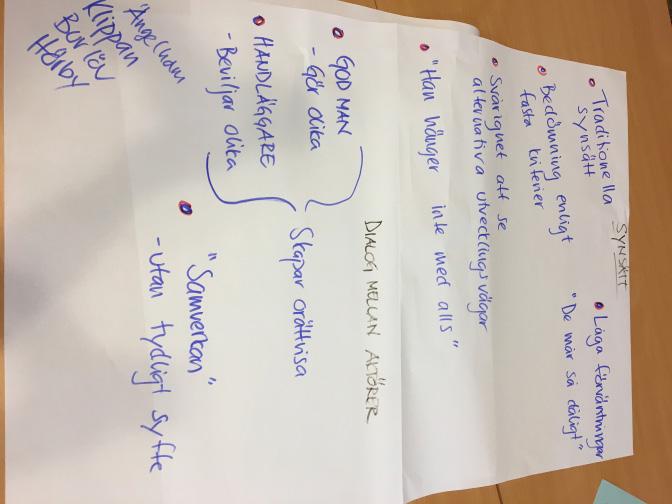 SYNSÄTT
• Traditionella
synsätt
• Bedömning enligt
fasta kriterier
• Svårighet att se
alternativa utvecklingsvägar
• "Han hänger inte med alls"
• Låga förväntningar
"De mår så dåligt"
DIALOG MELLAN AKTÖRER
• GOD MAN
- Gör olika
• HANDLÄGGARE
- Beviljar olika
Skapar orättvisa
• "Samverkan"
- utan tydligt syfte
Ängelholm
Klippan
Burlöv
Hörby